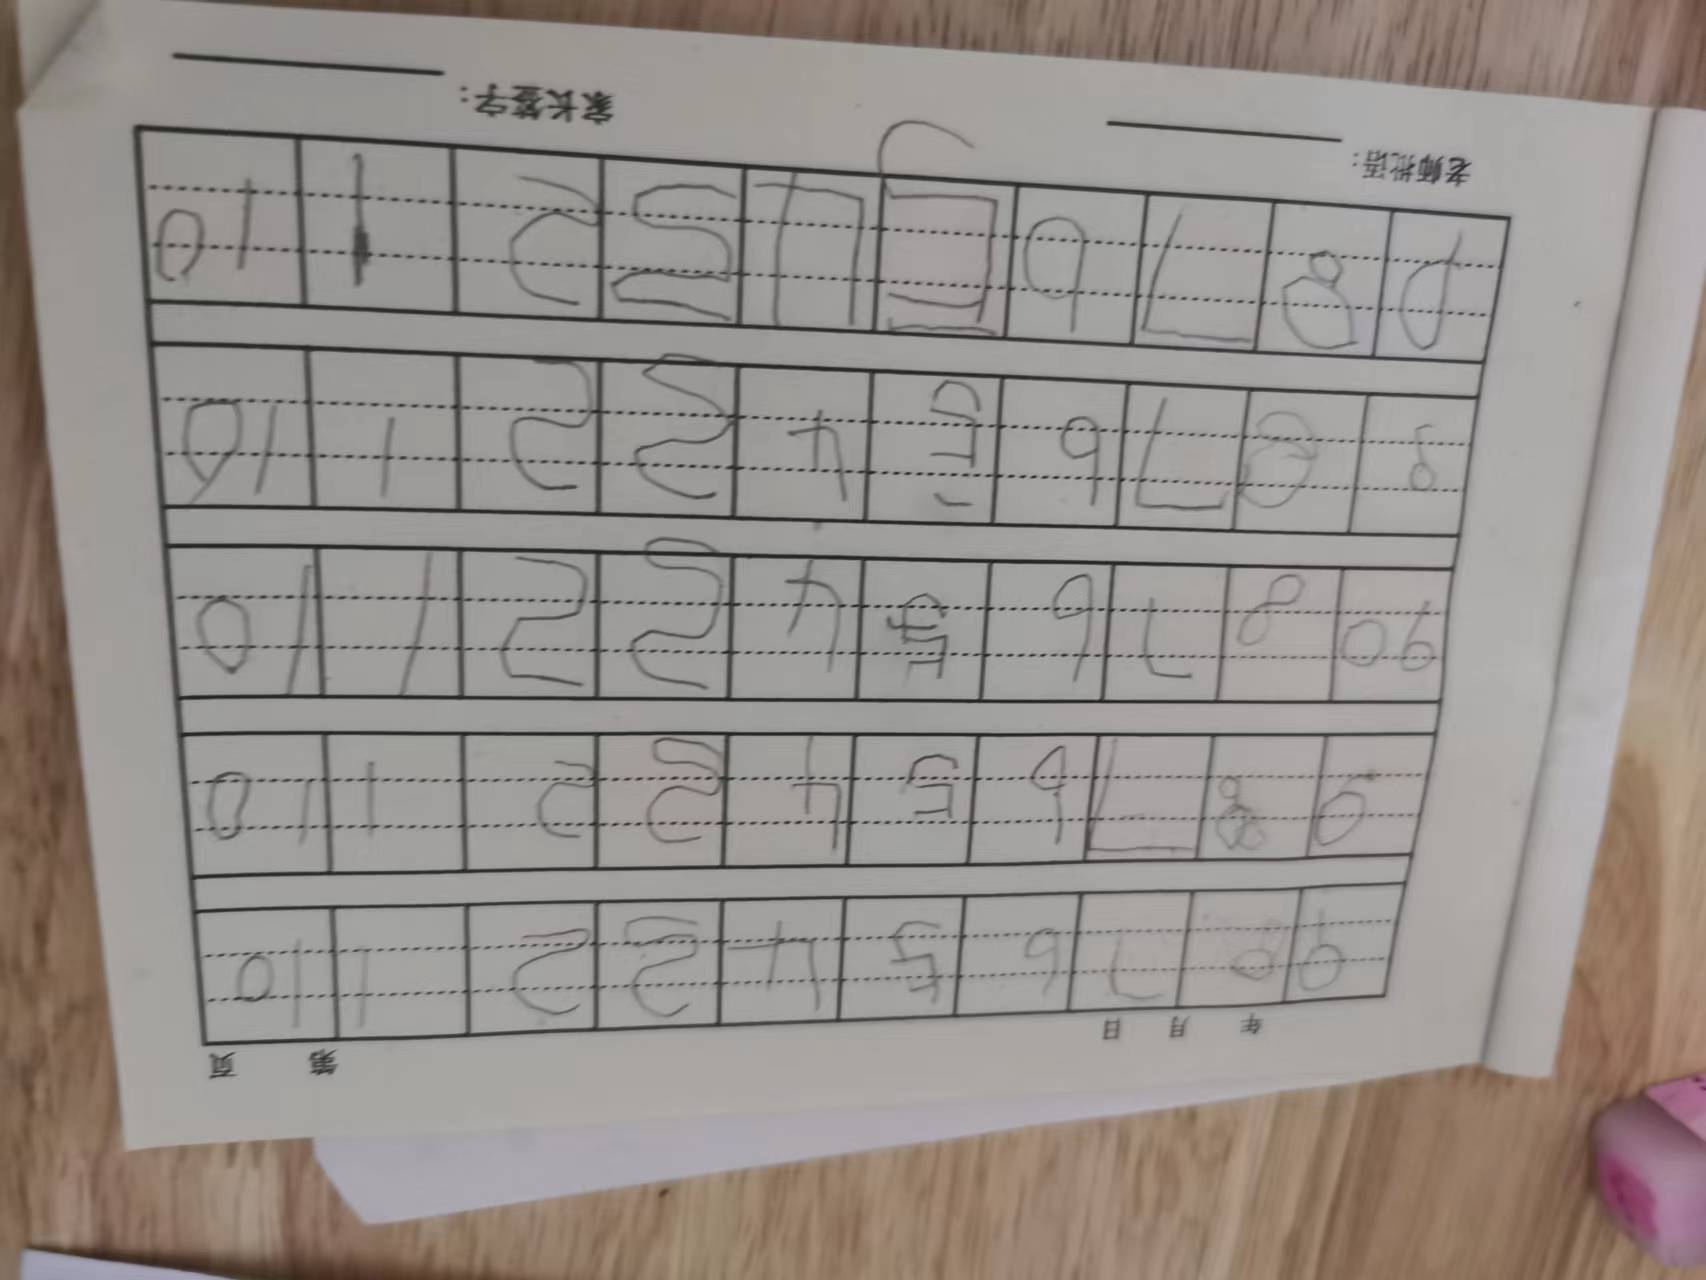 年 月 日 第 页
9 8 7 6 5 4 3 2 1 10
9 8 7 6 5 4 3 2 1 10
90 8 7 6 5 4 3 2 1 10
9 8 7 6 5 4 3 2 1 10
9 8 7 6 5 4 3 2 1 10
老师批语： 家长签字：